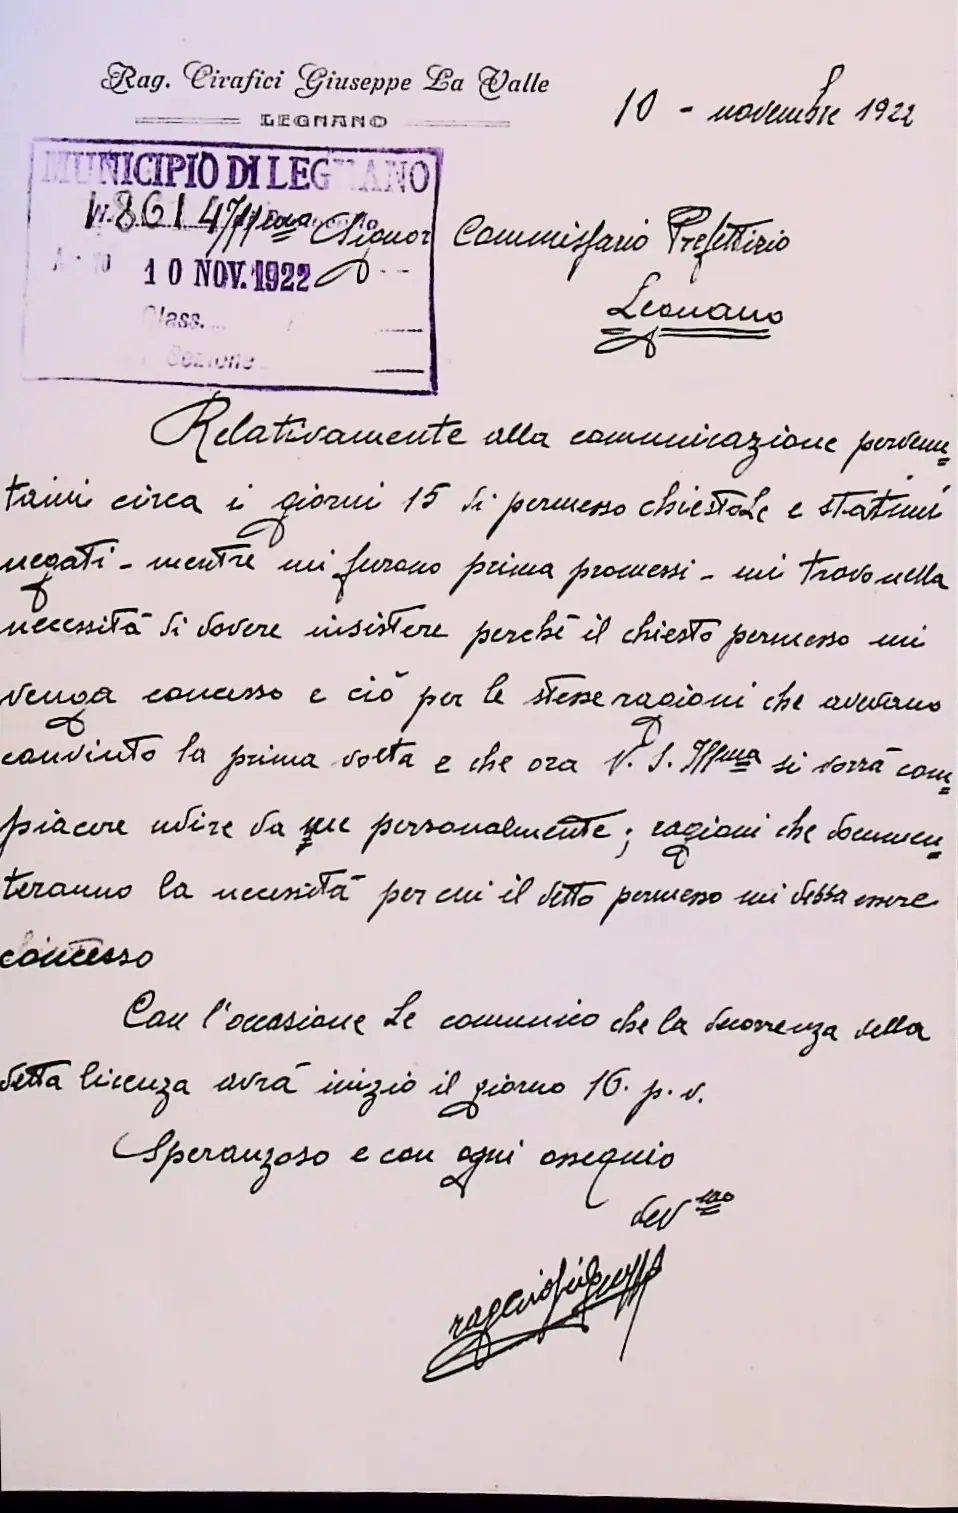 Rag. Cirafici Giuseppe La Valle
LEGNANO
10 - novembre 1922
MUNICIPIO DI LEGNANO
N. 8614
Ill.mo Signor Commissario Prefettizio
10 NOV. 1922
Legnano
Class.
Sezione
Relativamente alla comunicazione pervenu=
tami circa i giorni 15 di permesso chiestoLe e statimi
negati - mentre mi furono prima promessi - mi trovo nella
necessità di dovere insistere perchè il chiesto permesso mi
venga concesso e ciò per le stesse ragioni che avevano
convinto la prima volta e che ora V. S. Ill.ma si vorrà com=
piacere udire da me personalmente; ragioni che documen=
teranno la necessità per cui il detto permesso mi debba essere
concesso
Con l'occasione Le comunico che la decorrenza della
detta licenza avrà inizio il giorno 16. p. v.
Speranzoso e con ogni ossequio
dev.mo